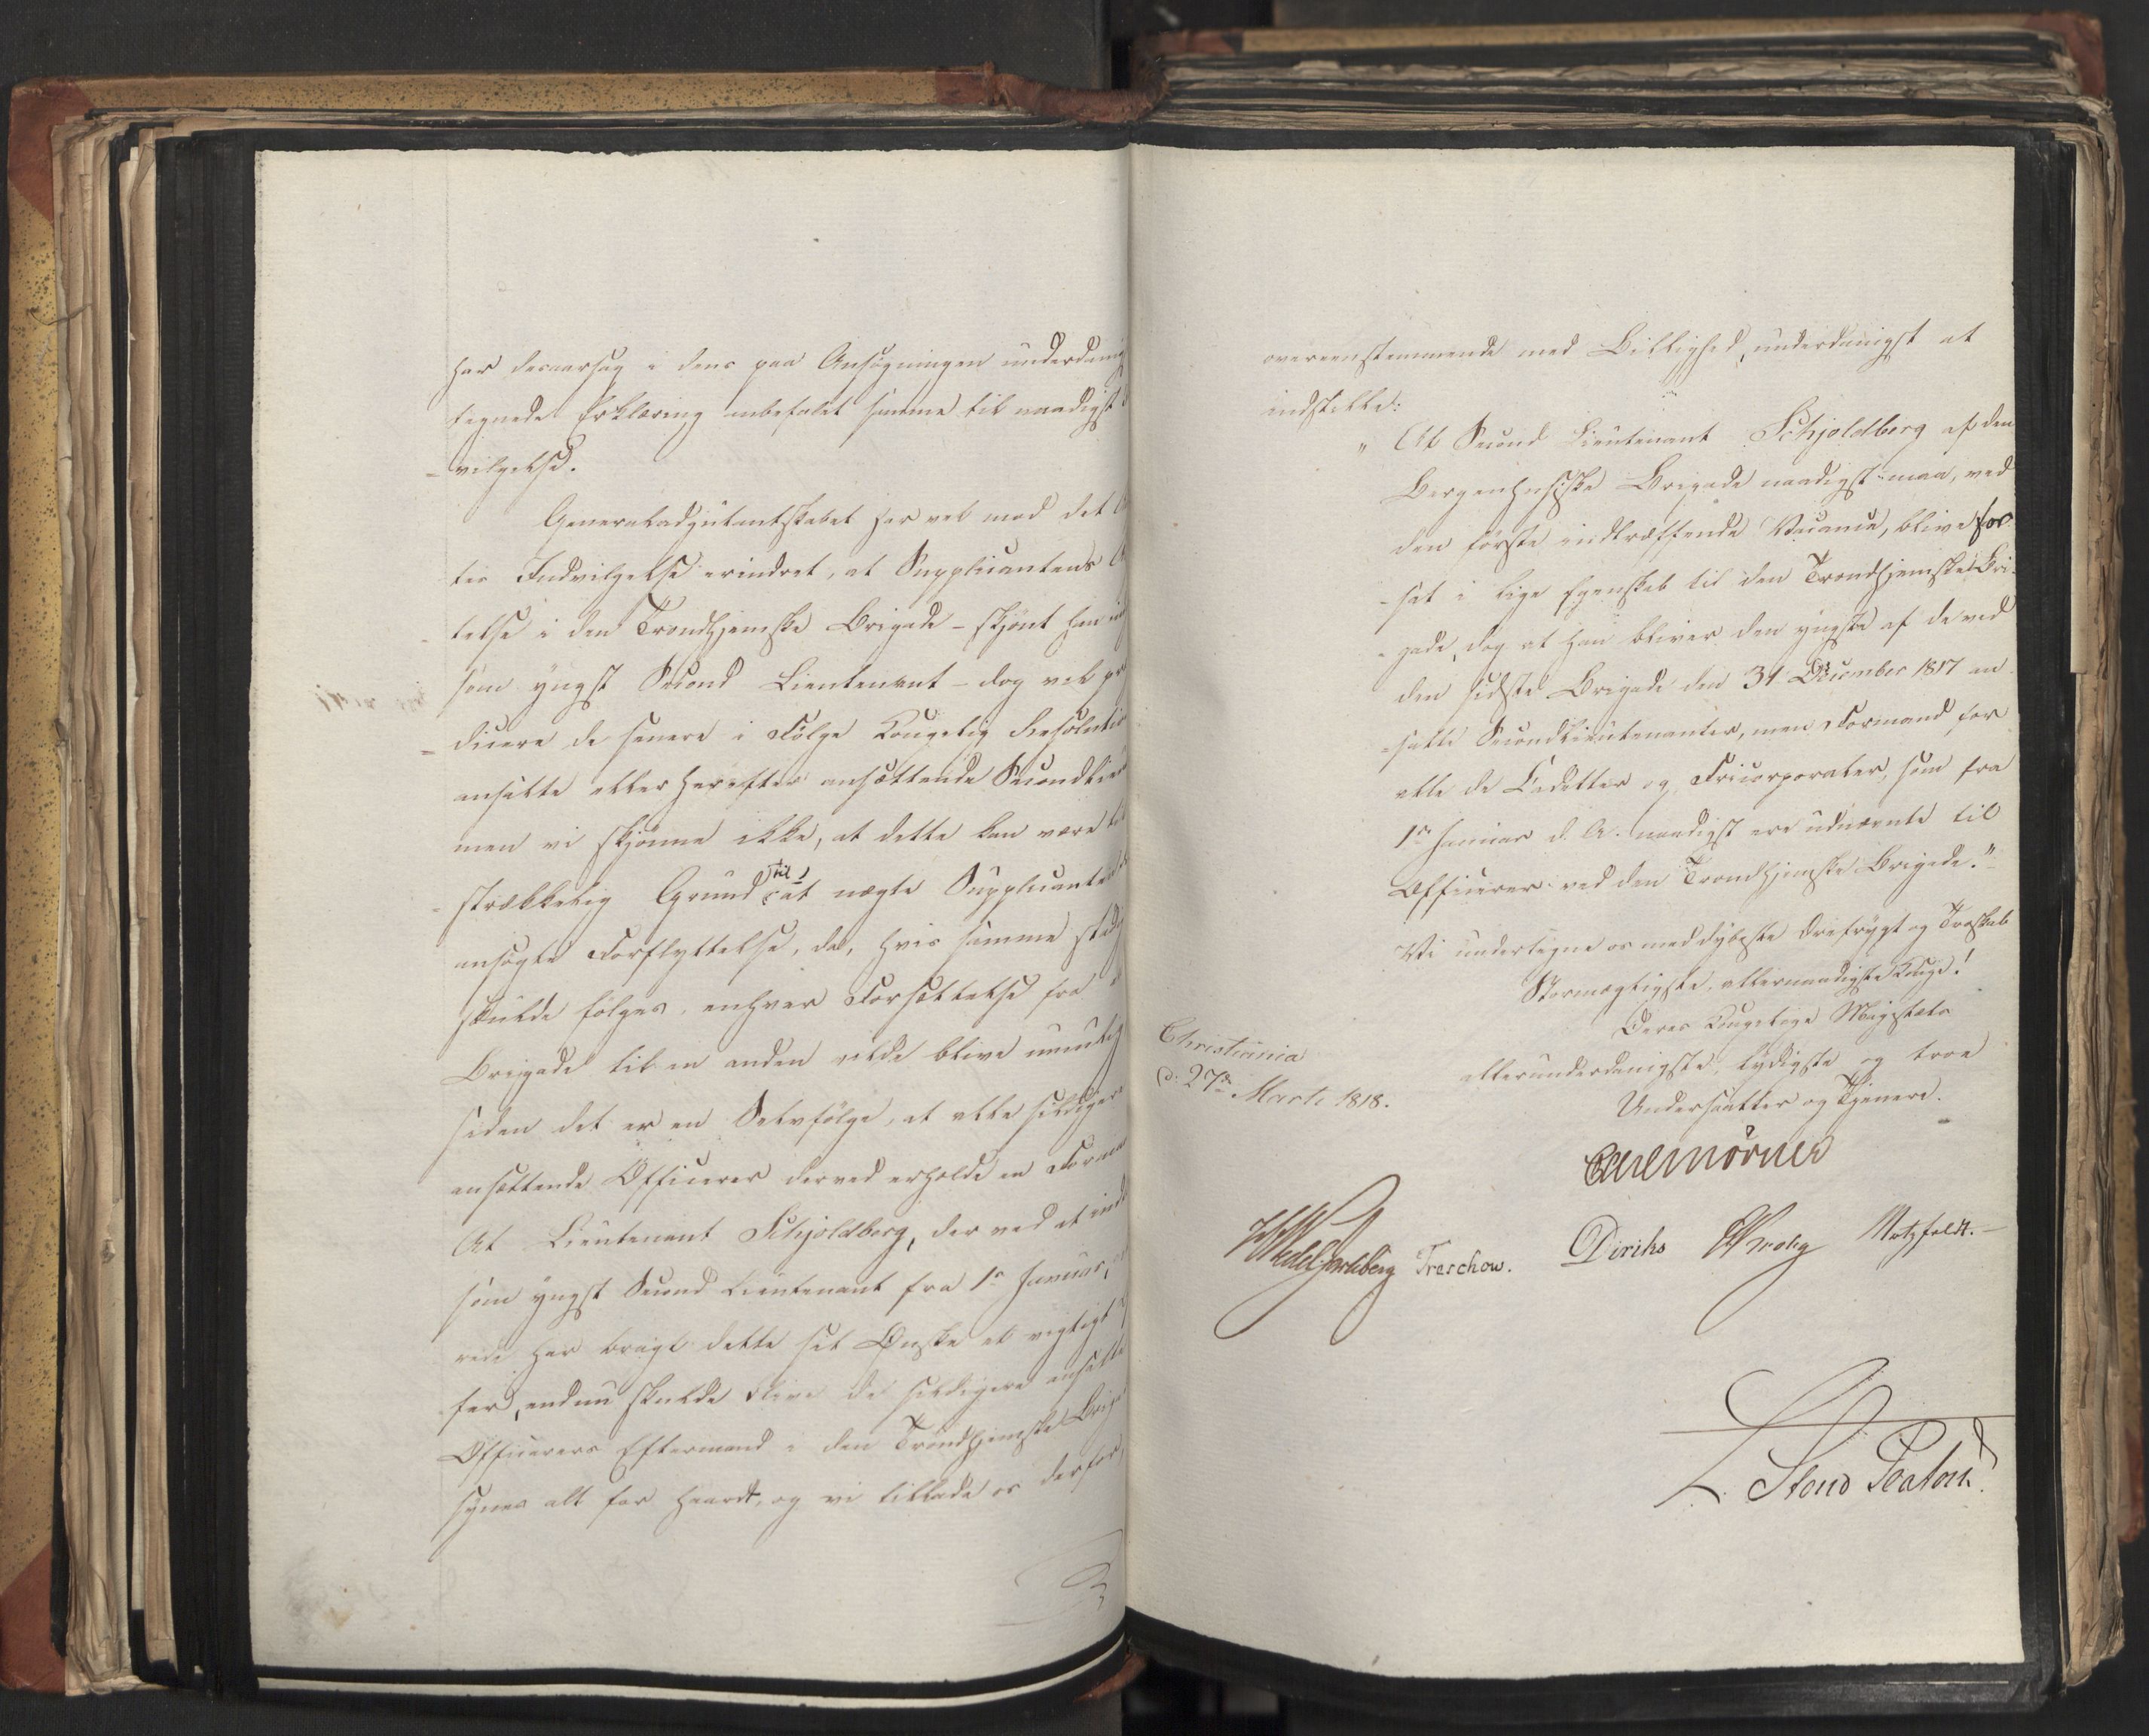 har desaarsag i dens paa Ansøgningen underdanig
tegnede Erklæring anbefalet samme til naadigst
-vilgelse.
Generaladjutantskabet har vel mod det
tes Indvilgelse erindret, at Supplicantens
-telse i den Trondhjemske Brigade - skjønt han
som yngst Second Lieutenant - dog vil
-dicere de senere i Følge Kongelig Resolution
ansatte eller herefter ansættende Secondlieu
men vi skjønne ikke, at dette kan være til
-strækkelig Grund til at nægte Supplicanten
ansøgte Forflyttelse, da, hvis samme
skulde følges, enhver Forsættelse fra
Brigade til en anden vilde blive umulig
siden det er en Selvfølge, at alle sildigere
ansættende Officerer derved erholde en Formand
At Lieutenant Schjoldborg, der ved at
som yngst Second Lieutenant fra 1e Januar,
rede har bragt dette sit Ønske et vigtigt
fer, endnu skulde blive de sildigere ansatte
Officerers Eftermand i den Trondhjemske Briga
synes alt for haardt, og vi tillade os derfor,
overeensstemmende med Billighed, underdanigst at
indstille:
" At Second Lieutenant Schjoldborg af den
Bergenhusiske Brigade naadigst maa, ved
den første indtræffende Vacance, blive for
-sat i lige Egenskab til den Trondhjemske Bri-
-gade, dog at han bliver den yngste af de ved
den sidste Brigade den 31 December 1817 an
-satte Secondlieutenanter, men Formand for
alle de Cadetter og Fricorporaler, som fra
1e Januar d. A. naadigst ere udnævnte til
Officerer ved den Trondhjemske Brigade."
Vi undertegne os med dybeste Ærefrygt og Troskab
Stormægtigste, allernaadigste Konge!
Deres Kongelige Majestæts
allerunderdanigste, lydigste og troe
Undersaatter og Tjenere.
Christiania
d: 27de Marts 1818.
Carl Mörner
HWedel Jarlsberg Treschow. Diriks Krohg Motzfeldt.
L. Stoud Platou